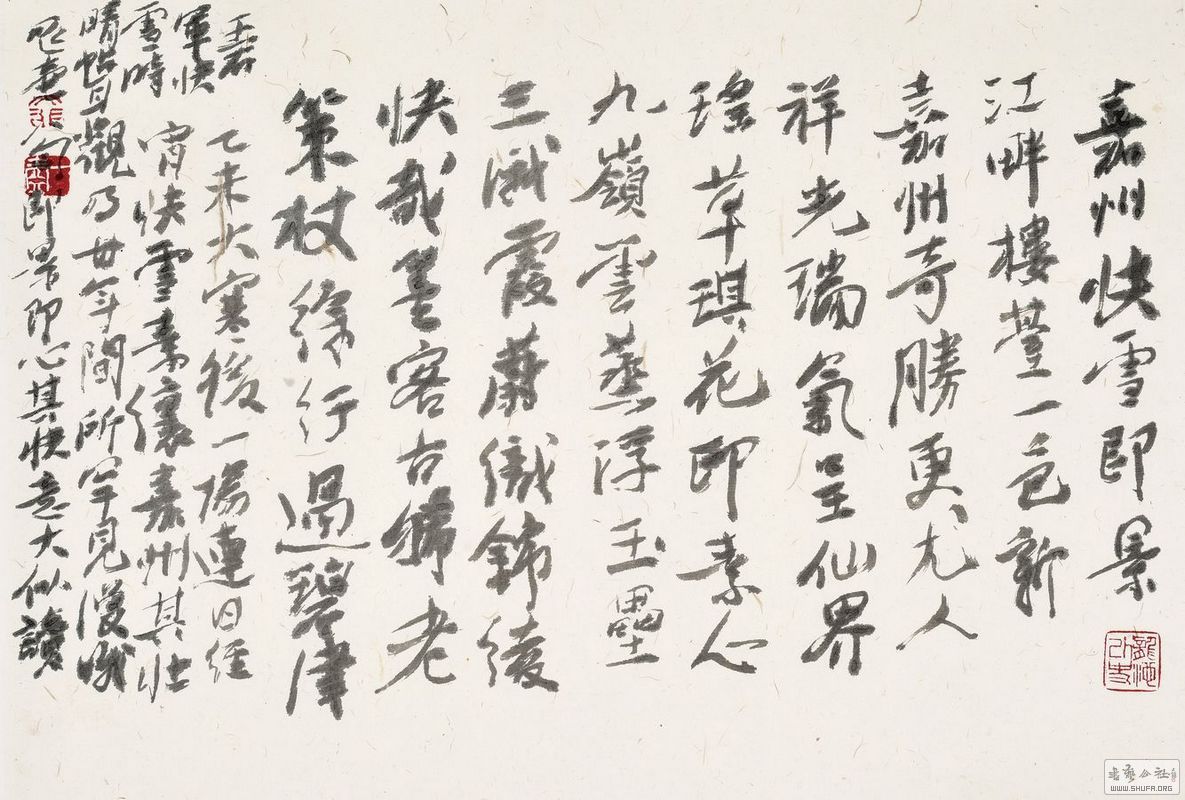 嘉州快雪即景
江畔樓臺一色新
嘉州奇勝更尤人
祥光瑞氣呈仙界
瑤草琪花即素心
九嶺雲蒸浮玉壘
三峨霞蔚織錦綾
快哉墨客古稀老
策杖徐行過碧津
乙未大寒後一場連日經
宵快雪素裹嘉州其壯
觀乃廿年間所罕見漫哦
句即景即心其快意大似讀
王右
軍快
雪時
晴帖耳
書藝公社
WWW.SHUFA.ORG